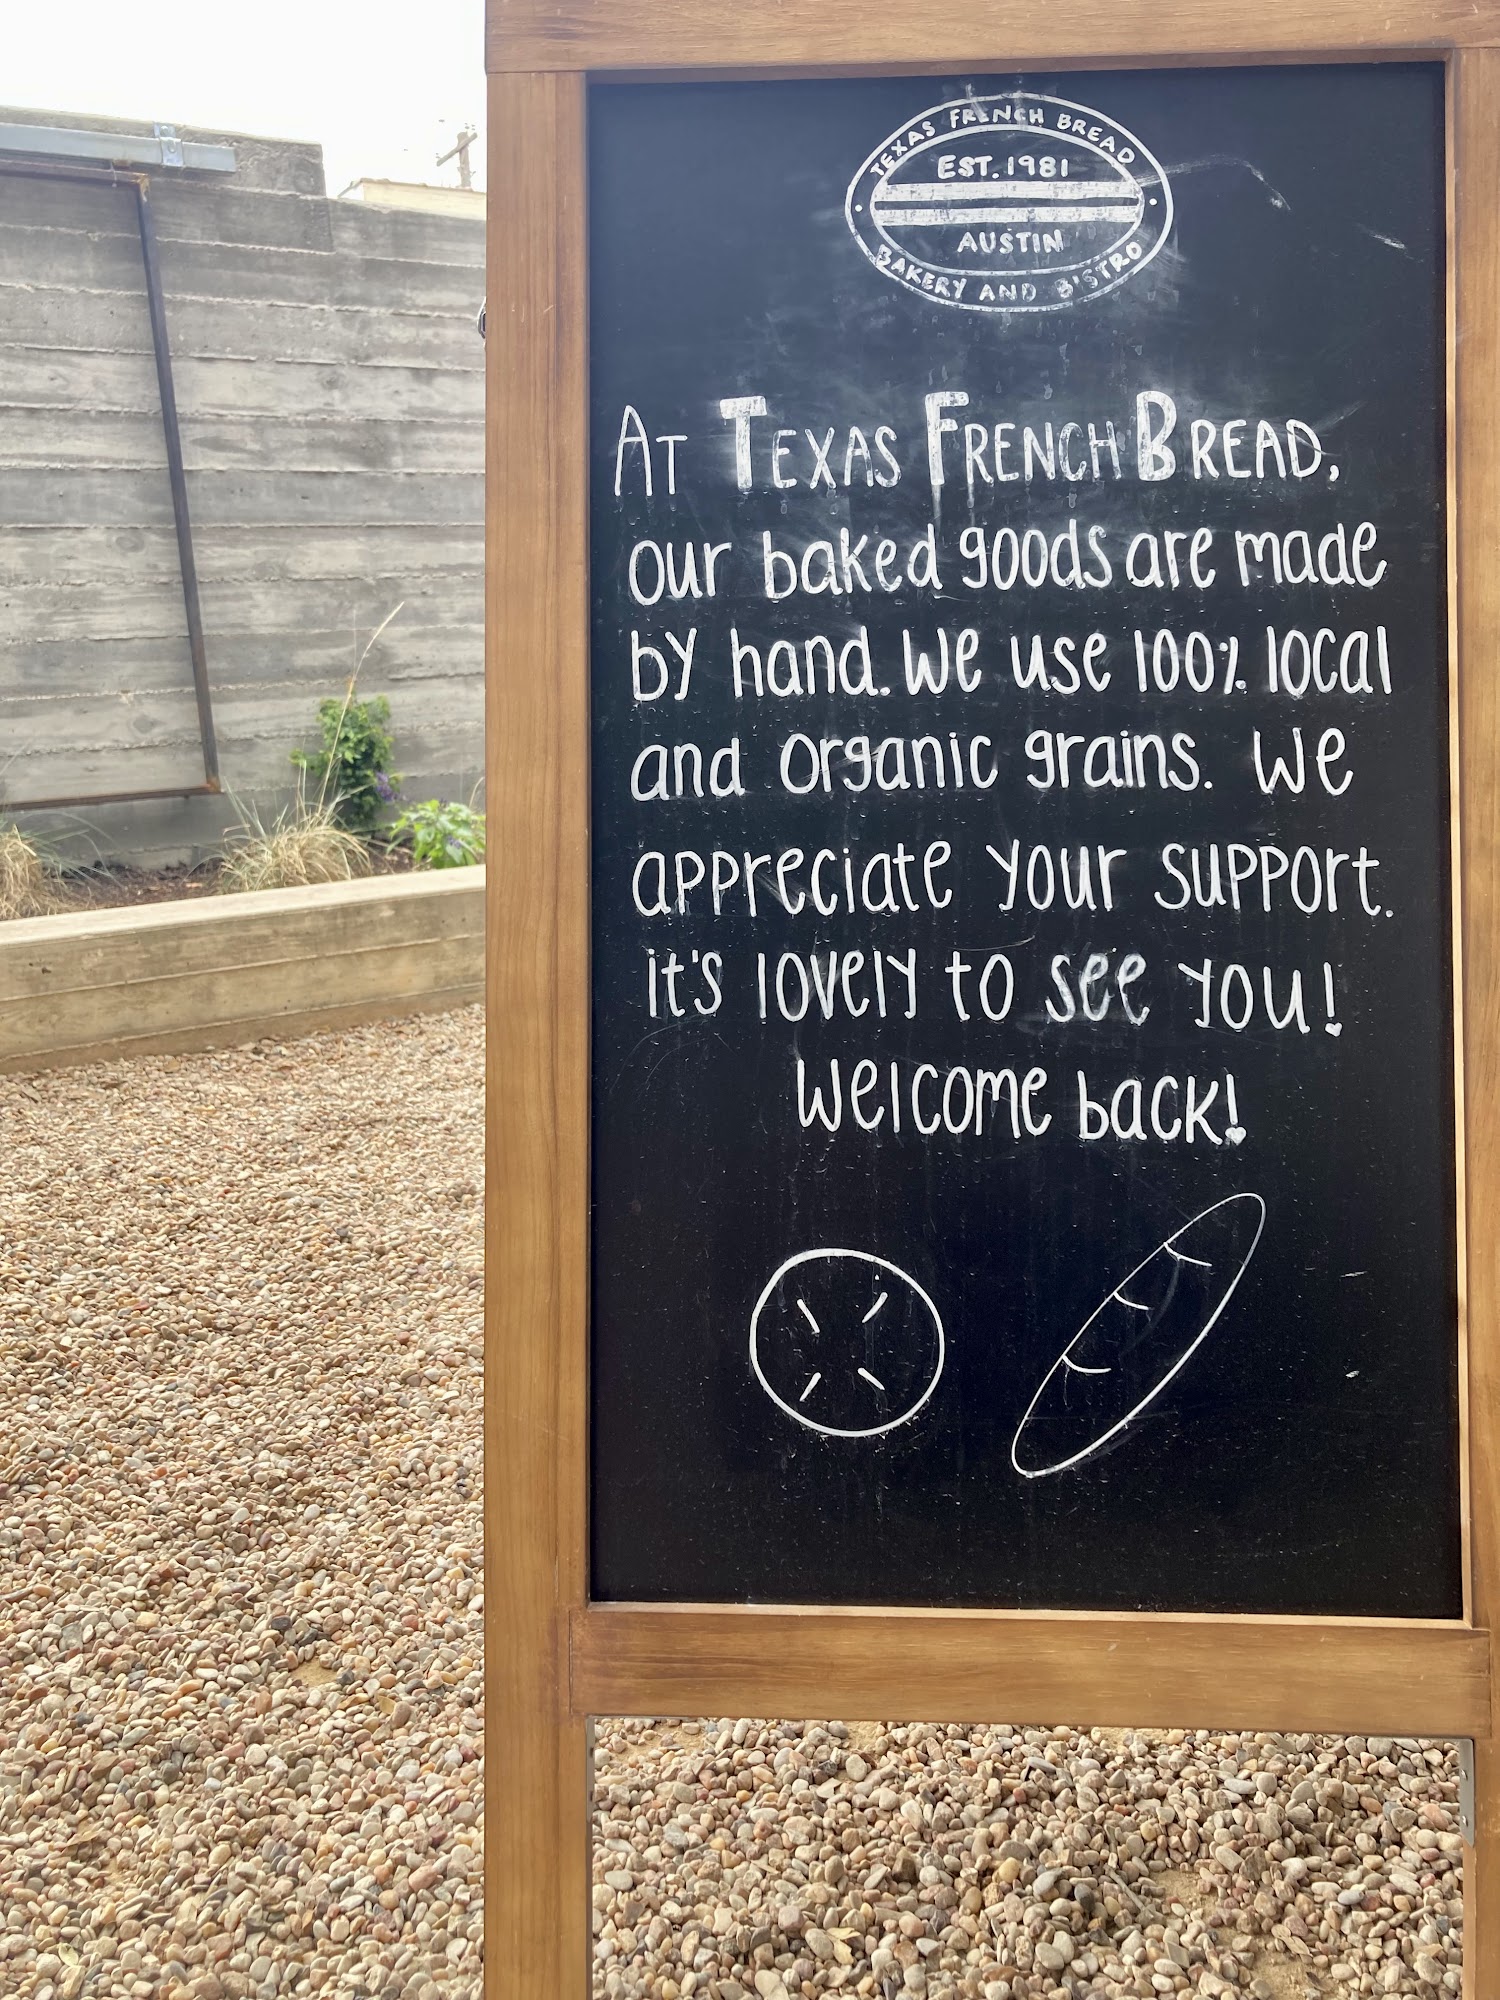 TEXAS FRENCH BREAD
EST. 1981
AUSTIN
BAKERY AND BISTRO
AT TEXAS FRENCH BREAD,
our baked goods are made
by hand. We use 100% local
and organic grains. We
appreciate your support.
it's lovely to see you!
Welcome back!